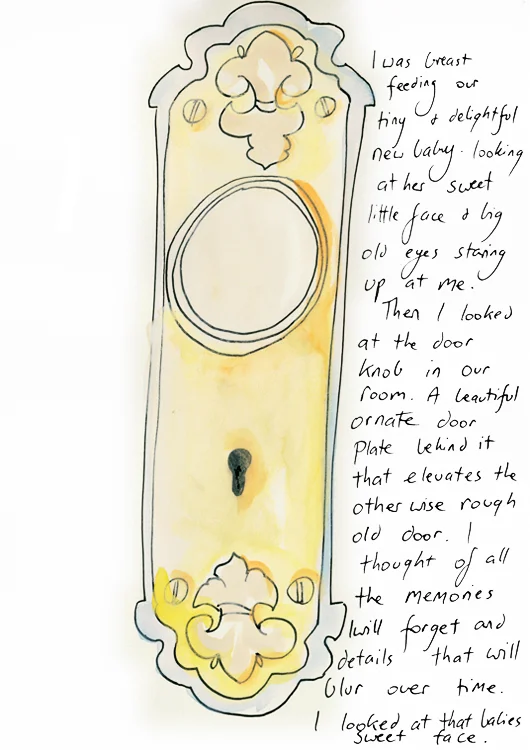 I was breast
feeding our
tiny & delightful
new baby. looking
at her sweet
little face & big
old eyes staring
up at me.
Then I looked
at the door
knob in our
room. A beautiful
ornate door
plate behind it
that elevates the
other wise rough
old door. I
thought of all
the memories
I will forget and
details that will
blur over time.
I looked at that babies
sweet face.